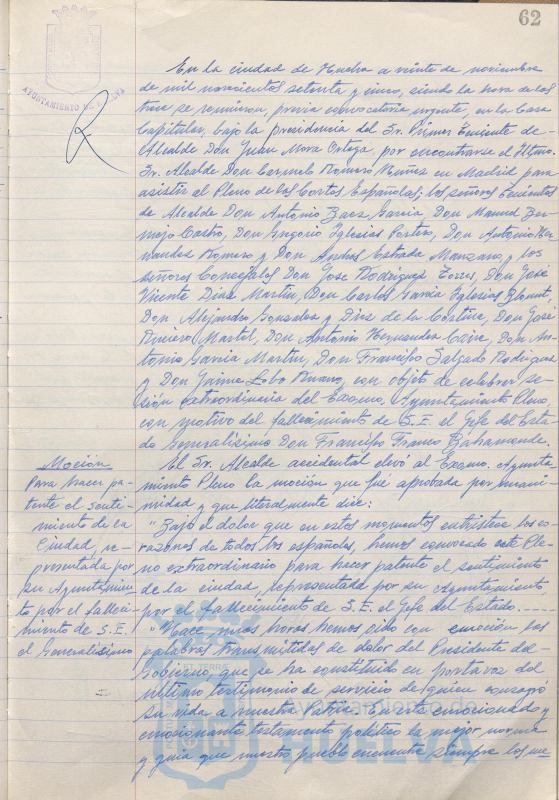 62
AYUNTAMIENTO DE HUELVA
En la ciudad de Huelva a veinte de noviembre
de mil novecientos setenta y cinco, siendo la hora de las
trece se reunieron, previa convocatoria urgente, en la Casa
Capitular, bajo la presidencia del Sr. Primer Teniente de
Alcalde Don Juan Mora Ortega, por encontrarse el Iltmo.
Sr. Alcalde Don Carmelo Romero Muñoz en Madrid para
asistir al Pleno de las Cortes Españolas; los señores Tenientes
de Alcalde Don Antonio Baez García, Don Manuel Ber-
mejo Castro, Don Gregorio Iglesias Don Antonio Her-
nandez Romero y Don Andrés Estrada Manzano, y los
señores Concejales Don Jose Rodriguez Torres, Don Jose
Vicente Diaz Martin, Don Carlos Garcia Iglesias
Don Alejandro Gonzalez y Diez de la Cortina, Don Jose
Riviero Martel, Don Antonio Hernandez Don An-
tonio Garcia Martin, Don Francisco Salgado Rodriguez
y Don Jaime Lobo con objeto de celebrar se-
sión extraordinaria del Excmo. Ayuntamiento Pleno
con motivo del fallecimiento de S.E. el Gefe del Esta-
do Generalísimo Don Francisco Franco Bahamonde.
Moción
Para hacer pa-
tente el senti-
miento de la
Ciudad, re-
presentada por
su Ayuntamien-
to por el falleci-
miento de S.E.
el Generalísimo
El Sr. Alcalde accidental elevó al Excmo. Ayunta-
miento Pleno la moción que fué aprobada por unani-
midad y que literalmente dice:
"Bajo el dolor que en estos momentos entristece los co-
razones de todos los españoles, hemos convocado este Ple-
no extraordinario para hacer patente el sentimiento
de la ciudad, representada por su Ayuntamiento
por el fallecimiento de S.E. el Gefe del Estado.
"Hace unas horas hemos oido con emoción las
palabras transmitidas de dolor del Presidente del
Gobierno, que se ha constituido en portavoz del
último testimonio de servicio de quien consagró
su vida a nuestra Patria. En este emocionado y
emocionante testamento político la mejor norma
y guia que nuestro pueblo encuentre siempre los me-